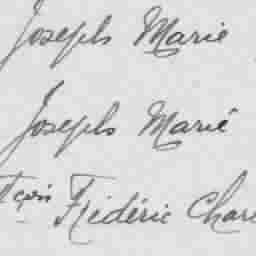 Joseph Marie
Joseph Marié
Frédéric Char